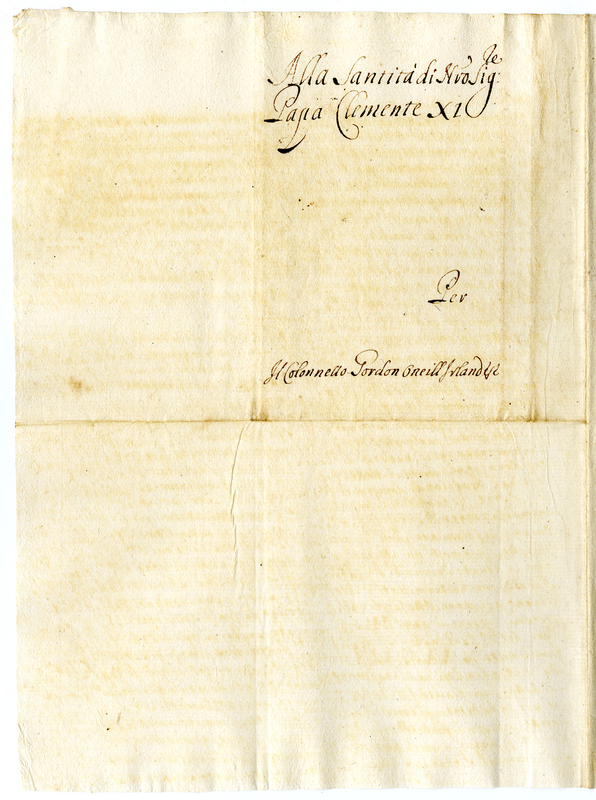 Alla Santità di Nro Sigre
Papa Clemente XI
Per
Il Colonnello Gordon Oneill Irlandese